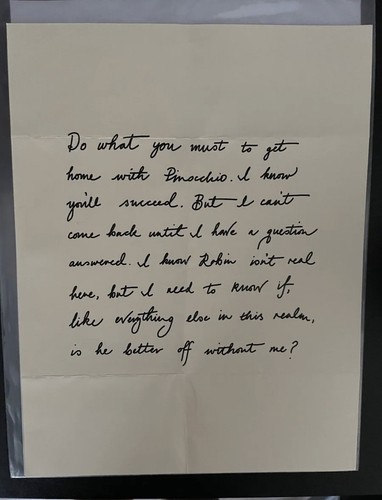 Do what you must to get
home with Pinocchio. I know
you'll succeed. But I can't
come back until I have a question
answered. I know Robin isn't real
here, but I need to know if,
like everything else in this realm,
is he better off without me?